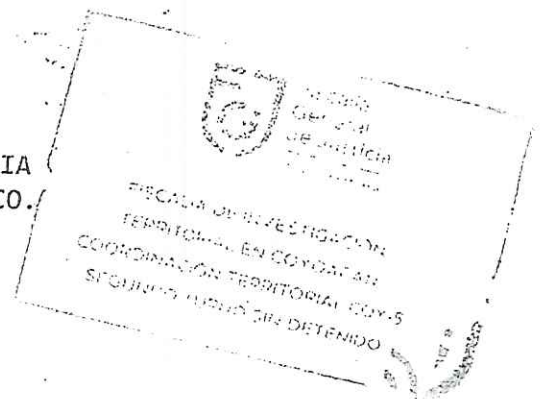 Fiscalía
General
de Justicia
IA
CO.
FISCALÍA DE INVESTIGACIÓN
TERRITORIAL EN COYOACÁN
COORDINACIÓN TERRITORIAL COY-5
SEGUNDO TURNO SIN DETENIDO